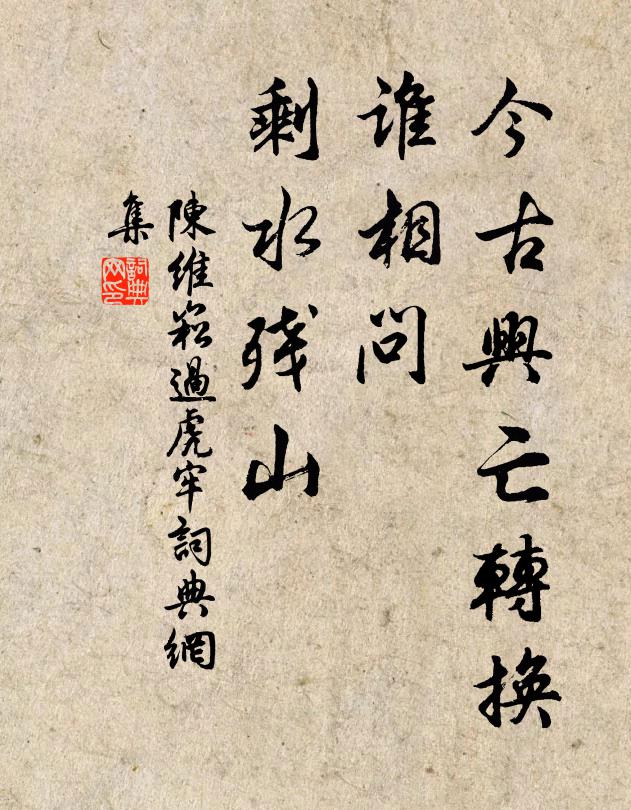 今古興亡轉換
誰相問
剩水残山
陳維崧過虎牢詞典網
集
詞典网印